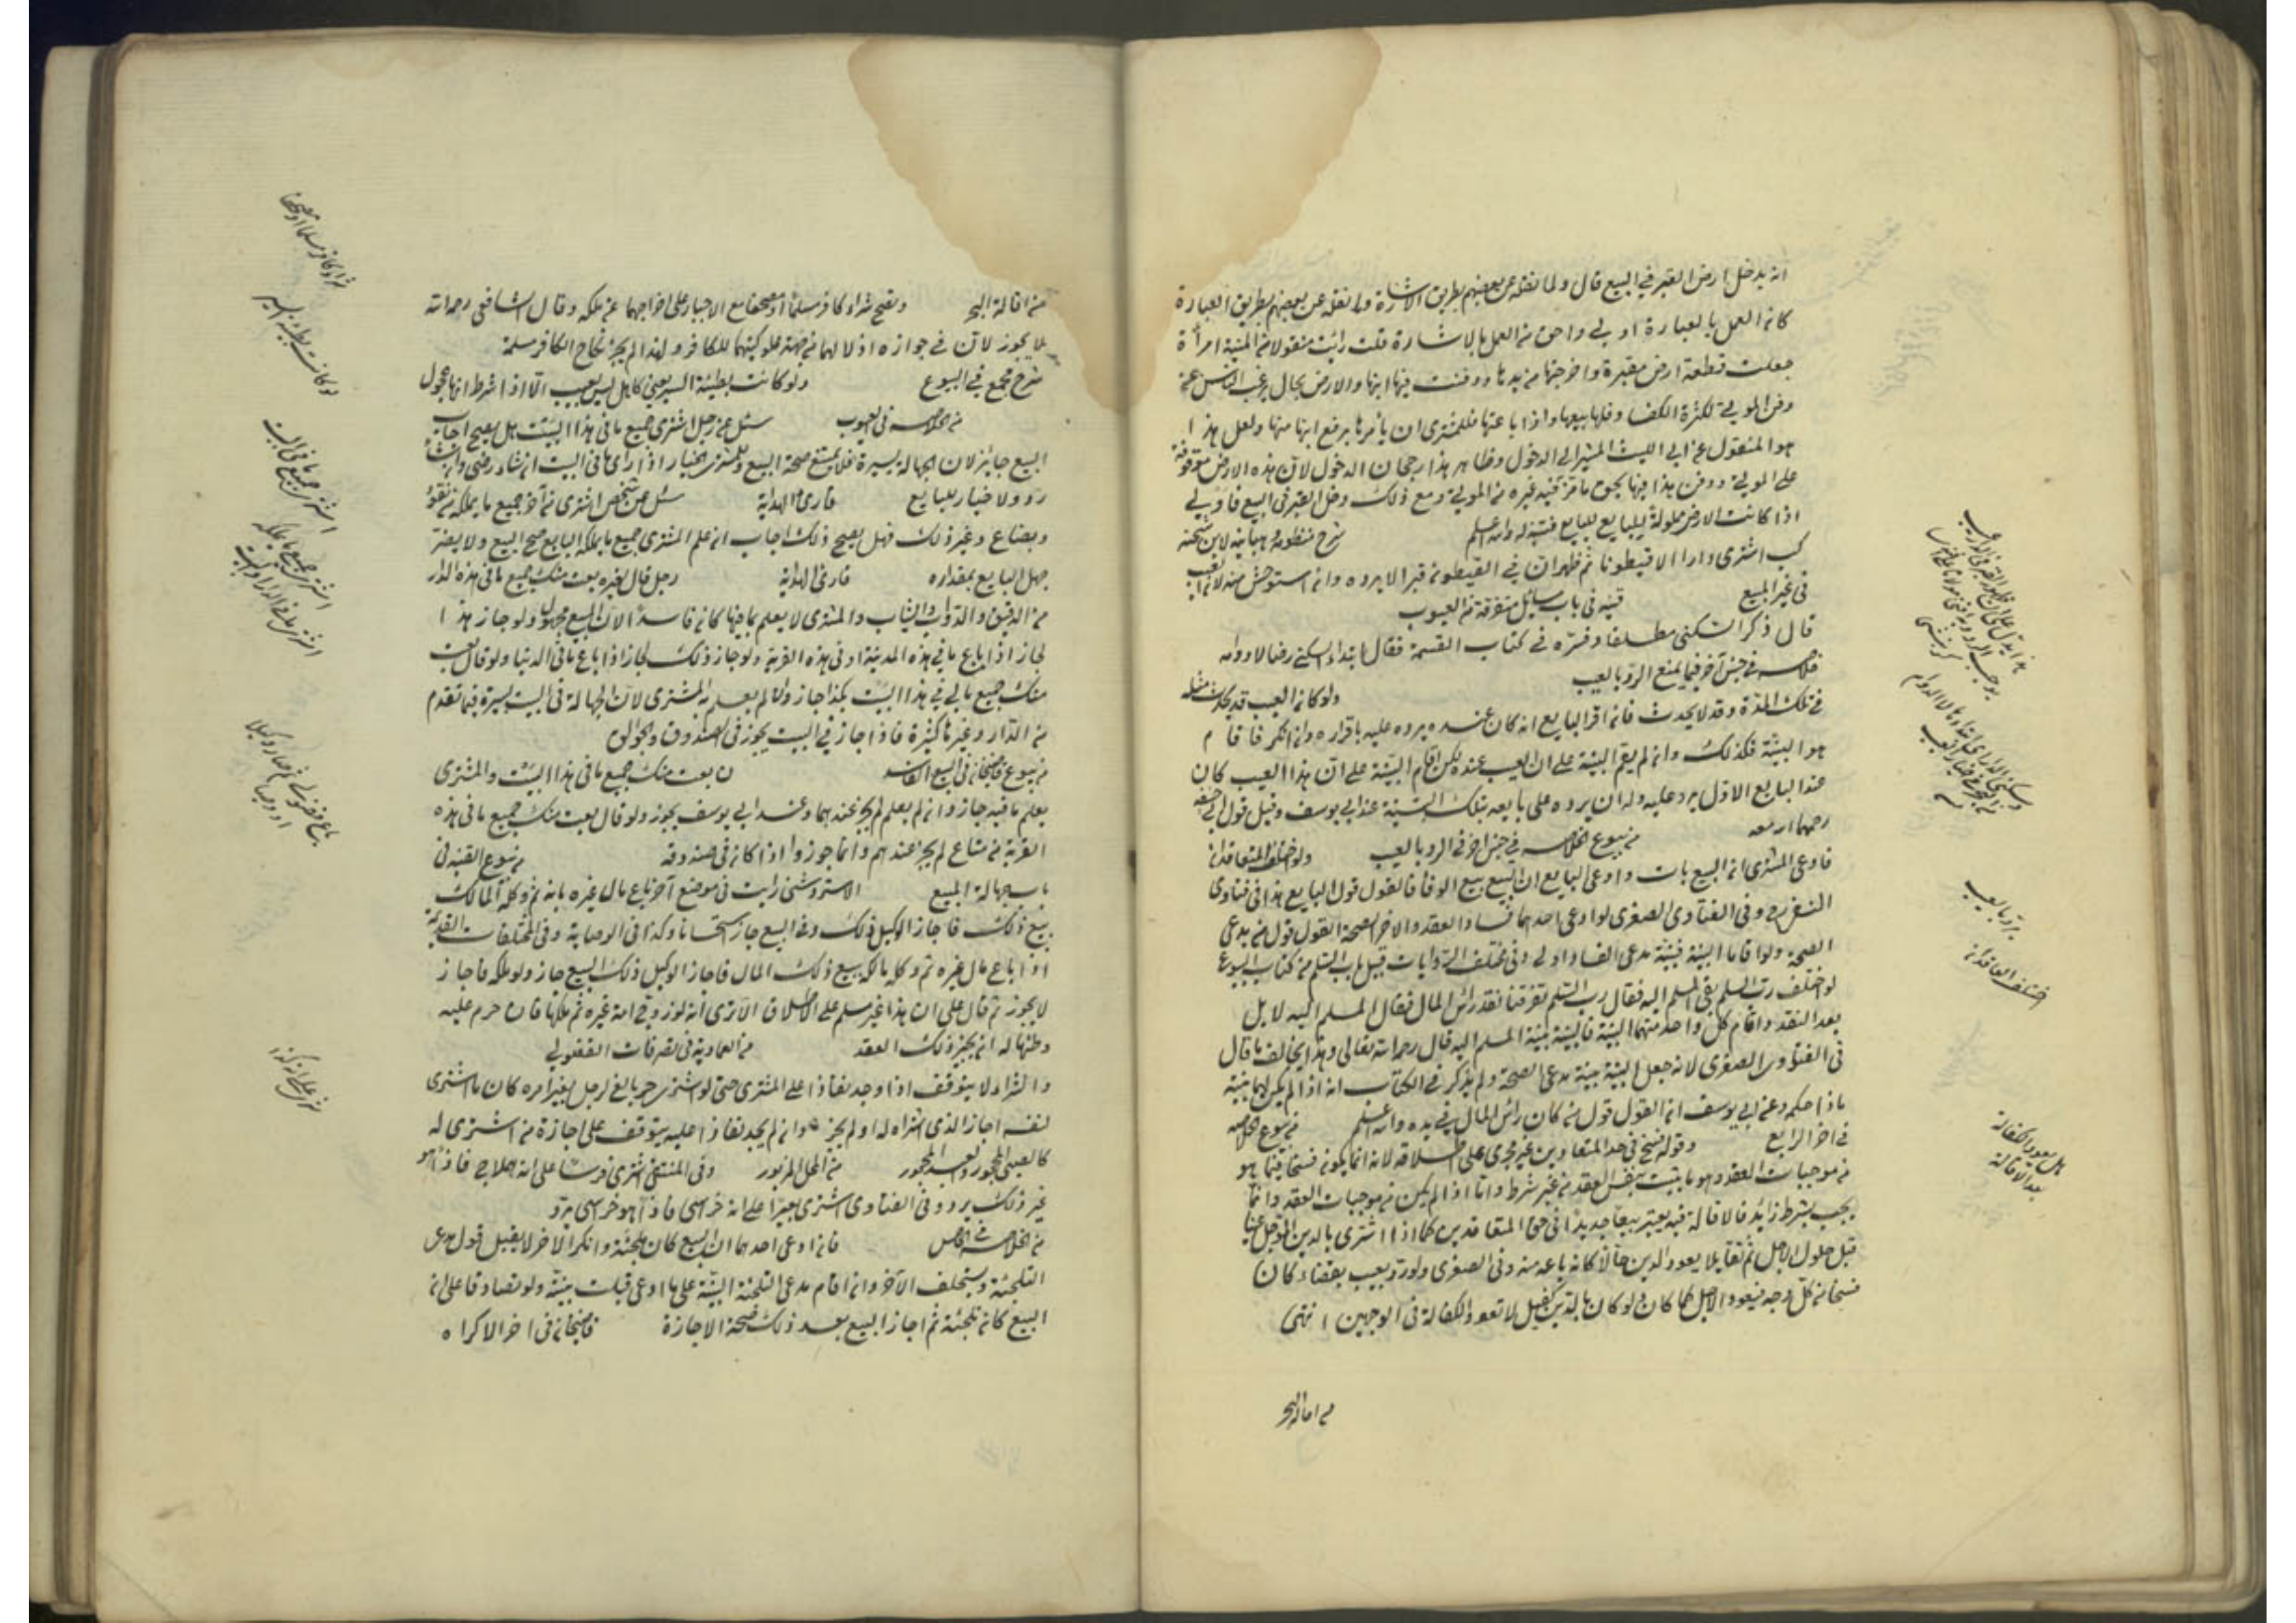 انه يدخل ارض القبر في البيع قال ولما نقله عن بعضهم بطريق الاشارة وما نقله عن بعضهم بطريق العبارة
كان العمل بالعبارة اولى واحق من العمل بالاشارة قلت رأيت منقولا من المنية امرأة
جعلت قطعة ارض مقبرة واخرجتها من يدها ودفنت فيها ابنها والارض بحال يرغب الناس عن
دفن الموتى لكثرة فلها بيعها واذا باعتها فللمشترى ان يأمرها برفع ابنها منها ولعل هذا
هو المنقول عن ابى الليث المشير الى الدخول وظاهر هذا رجحان الدخول لان هذه الارض موقوفة
على الموتى ودفن هذا فيها بحق ما دفن فيه غيره من الموتى ومع ذلك دخل القبر في البيع فاولى
اذا كانت الارض مملوكة للبايع فتنبه له والله اعلم شرح منظومة لابن شحنة
اشترى دارا الا قيطونا ثم ظهر ان في القيطون قبرا لا يرده وان استوحش منه لانه لعيب
في غير المبيع قنيه في باب مسائل متفرقة من العيوب
قال ذكر السكنى مطلقا وفسره في كتاب القسمة فقال ابتداء السكنى رضا لا دوامه
خلاصه في جنس آخر فيما يمنع الرد بالعيب ولو كان العيب قد يحدث مثله
في تلك المدة وقد لا يحدث فان اقر البايع انه كان عنده يرده عليه باقراره وان انكر فاقام
هو البينة فكذلك وان لم يقم البينة على ان العيب عنده لكن اقام البينة على ان هذا العيب كان
عند البايع الاول يرد عليه وله ان يرده على بايعه بتلك البينة عند ابى يوسف وقيل قول ابى حنيفة
رحمهما الله من بيوع الخلاصه في جنس آخر في الرد بالعيب ولو اختلف المتعاقدان
فادعى المشترى ان البيع بات وادعى البايع ان البيع بيع الوفا فالقول قول البايع هذا في فتاوى
النسفى وفي الفتاوى الصغرى لو ادعى احدهما فساد العقد والاخر الصحة القول قول من يدعى
الصحة ولو اقاما البينة فبينة مدعى الفساد اولى وفي مختلف الروايات قبيل باب السلم من كتاب البيوع
لو اختلف رب السلم والمسلم اليه فقال رب السلم تفرقنا نقد رأس المال فقال المسلم اليه لا بل
بعد النقد واقام كل واحد منهما البينة فالبينة بينة المسلم اليه قال رحمه الله تعالى وهذا يخالف ما قال
في الفتاوى الصغرى لانه جعل البينة بينة مدعى الصحة ولم يذكر في الكتاب انه اذا لم يكن لهما بينة
ماذا حكمه وعن ابى يوسف ان القول قول من كان رأس المال في يده والله اعلم من بيوع الخلاصه
في اخر الرابع وقوله فسخ في حق المتعاقدين غير مجرى على اطلاقه لانه انما يكون فسخا فيما هو
من موجبات العقد وهو ما يثبت بنفس العقد من غير شرط واما اذا لم يكن من موجبات العقد وانما
يجب بشرط زائد فالاقالة فيه يعتبر بيعا جديدا في حق المتعاقدين كما اذا اشترى بالدين المؤجل عينا
قبل حلول الاجل ثم تقايلا يعود الدين حالا كانه باعه منه وفي الصغرى ولو رد بعيب بقضاء كان
فسخا من كل وجه فيعود الاجل كما كان ولو كان بالدين كفيل لا تعود الكفالة في الوجهين انتهى
من اقالة البحر
يرد بالعيب
اختلف العاقدان
هل يعود الكفالة
بعد الاقالة
من اقالة البحر وتصح شراء كافر مسلما او مصحفا مع الاجبار على اخراجهما عن ملكه وقال الشافعى رحمه الله
لا يجوز لان في جوازه اذلالهما من جهة مملوكيتهما للكافر ولهذا لم يجز نكاح الكافر مسلمة
شرح مجمع في البيوع ولو كانت بطيئة السير يعنى كاهل ليس بعيب الا اذا شرط انها عجول
من خلاصه في العيوب سئل عن رجل اشترى جميع ما في هذا البيت هل يصح اجاب
البيع جائز لان الجهالة يسيرة فلا تمنع صحة البيع وللمشترى الخيار اذا رأى ما في البيت ان شاء رضى وان شاء
رد ولا خيار للبايع قارئ الهداية سئل عن شخص اشترى من آخر جميع ما يملكه من نقود
وبضايع وغير ذلك فهل يصح ذلك اجاب ان علم المشترى جميع ما يملكه البايع صح البيع ولا يضر
جهل البايع بمقداره قارئ الهداية رجل قال لغيره بعت منك جميع ما في هذه الدار
من الرقيق والدواب والثياب والمشترى لا يعلم بما فيها كان فاسدا لان المبيع مجهول ولو جاز هذا
لجاز اذا باع ما في هذه المدينة او في هذه القرية ولو جاز ذلك لجاز اذا باع ما في الدنيا ولو قال بعت
منك جميع مالى في هذا البيت بكذا جاز وان لم يعلم به المشترى لان الجهالة في البيت يسيرة فيما تقدم
من الدار وغيرها كثيرة فاذا جاز في البيت يجوز في الصندوق والجوالق
من بيوع قاضيخان في البيع الفاسد بعت منك جميع ما في هذا البيت والمشترى
يعلم ما فيه جاز وان لم يعلم لم يجز عندهما وعند ابى يوسف يجوز ولو قال بعت منك جميع ما في هذه
القرية من متاع لم يجز عندهم وانما جوزوا اذا كان في صندوقه من بيوع القنيه في
باب جهالة المبيع الاستروشنى رأيت في موضع آخر باع مال غيره ثم وكله المالك
ببيع ذلك فاجاز الوكيل ذلك البيع جاز استحسانا وكذا في الوصاية وفي المختلفات القديمة
اذا باع مال غيره ثم وكله مالكه ببيع ذلك المال فاجاز الوكيل ذلك البيع جاز ولو ملكه فاجاز
لا يجوز ثم قال على ان هذا غير مسلم على الاطلاق الا ترى انه لو زوج امة غيره ثم ملكها فان حرم عليه
وطئها له ان يجيز ذلك العقد من العمادية في تصرفات الفضولى
والشراء لا يتوقف اذا وجد نفاذا على المشترى حتى لو اشترى حر بالغ لرجل بغير امره كان ما اشترى
لنفسه اجاز الذى اشتراه له او لم يجز وان لم يجد نفاذا عليه يتوقف على اجازة من اشترى له
كالصبى المحجور والعبد المحجور من المحل المزبور وفي المنتقى اشترى فرسا على انه هملاج فاذا هو
غير ذلك يرد وفي الفتاوى اشترى بعيرا على انه خراسى فاذا هو خرسى يرد
من الخلاصه في الخامس فان ادعى احدهما ان البيع كان تلجئة وانكر الاخر لا يقبل قول مدعى
التلجئة ويستحلف الآخر وان اقام مدعى التلجئة البينة على ما ادعى قبلت بينته ولو تصادقا على ان
البيع كان تلجئة ثم اجاز البيع بعد ذلك صحت الاجازة قاضيخان في اخر الاكراه
شراء كافر مسلما او مصحفا
لو كانت بطيئة السير
اشترى جميع ما في البيت
اشترى جميع ما يملكه